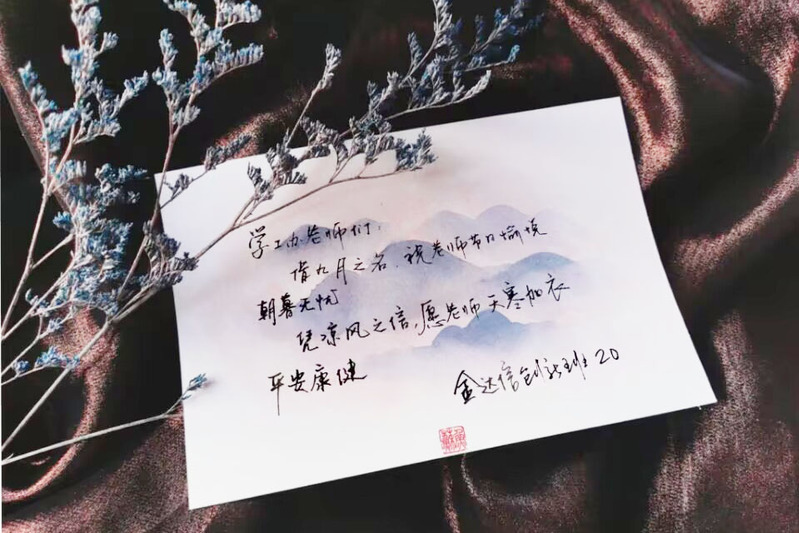 学工办老师们:
借九月之名,祝老师节日愉悦
朝暮无忧
凭凉风之信,愿老师天寒加衣
平安康健
金达信创新班20